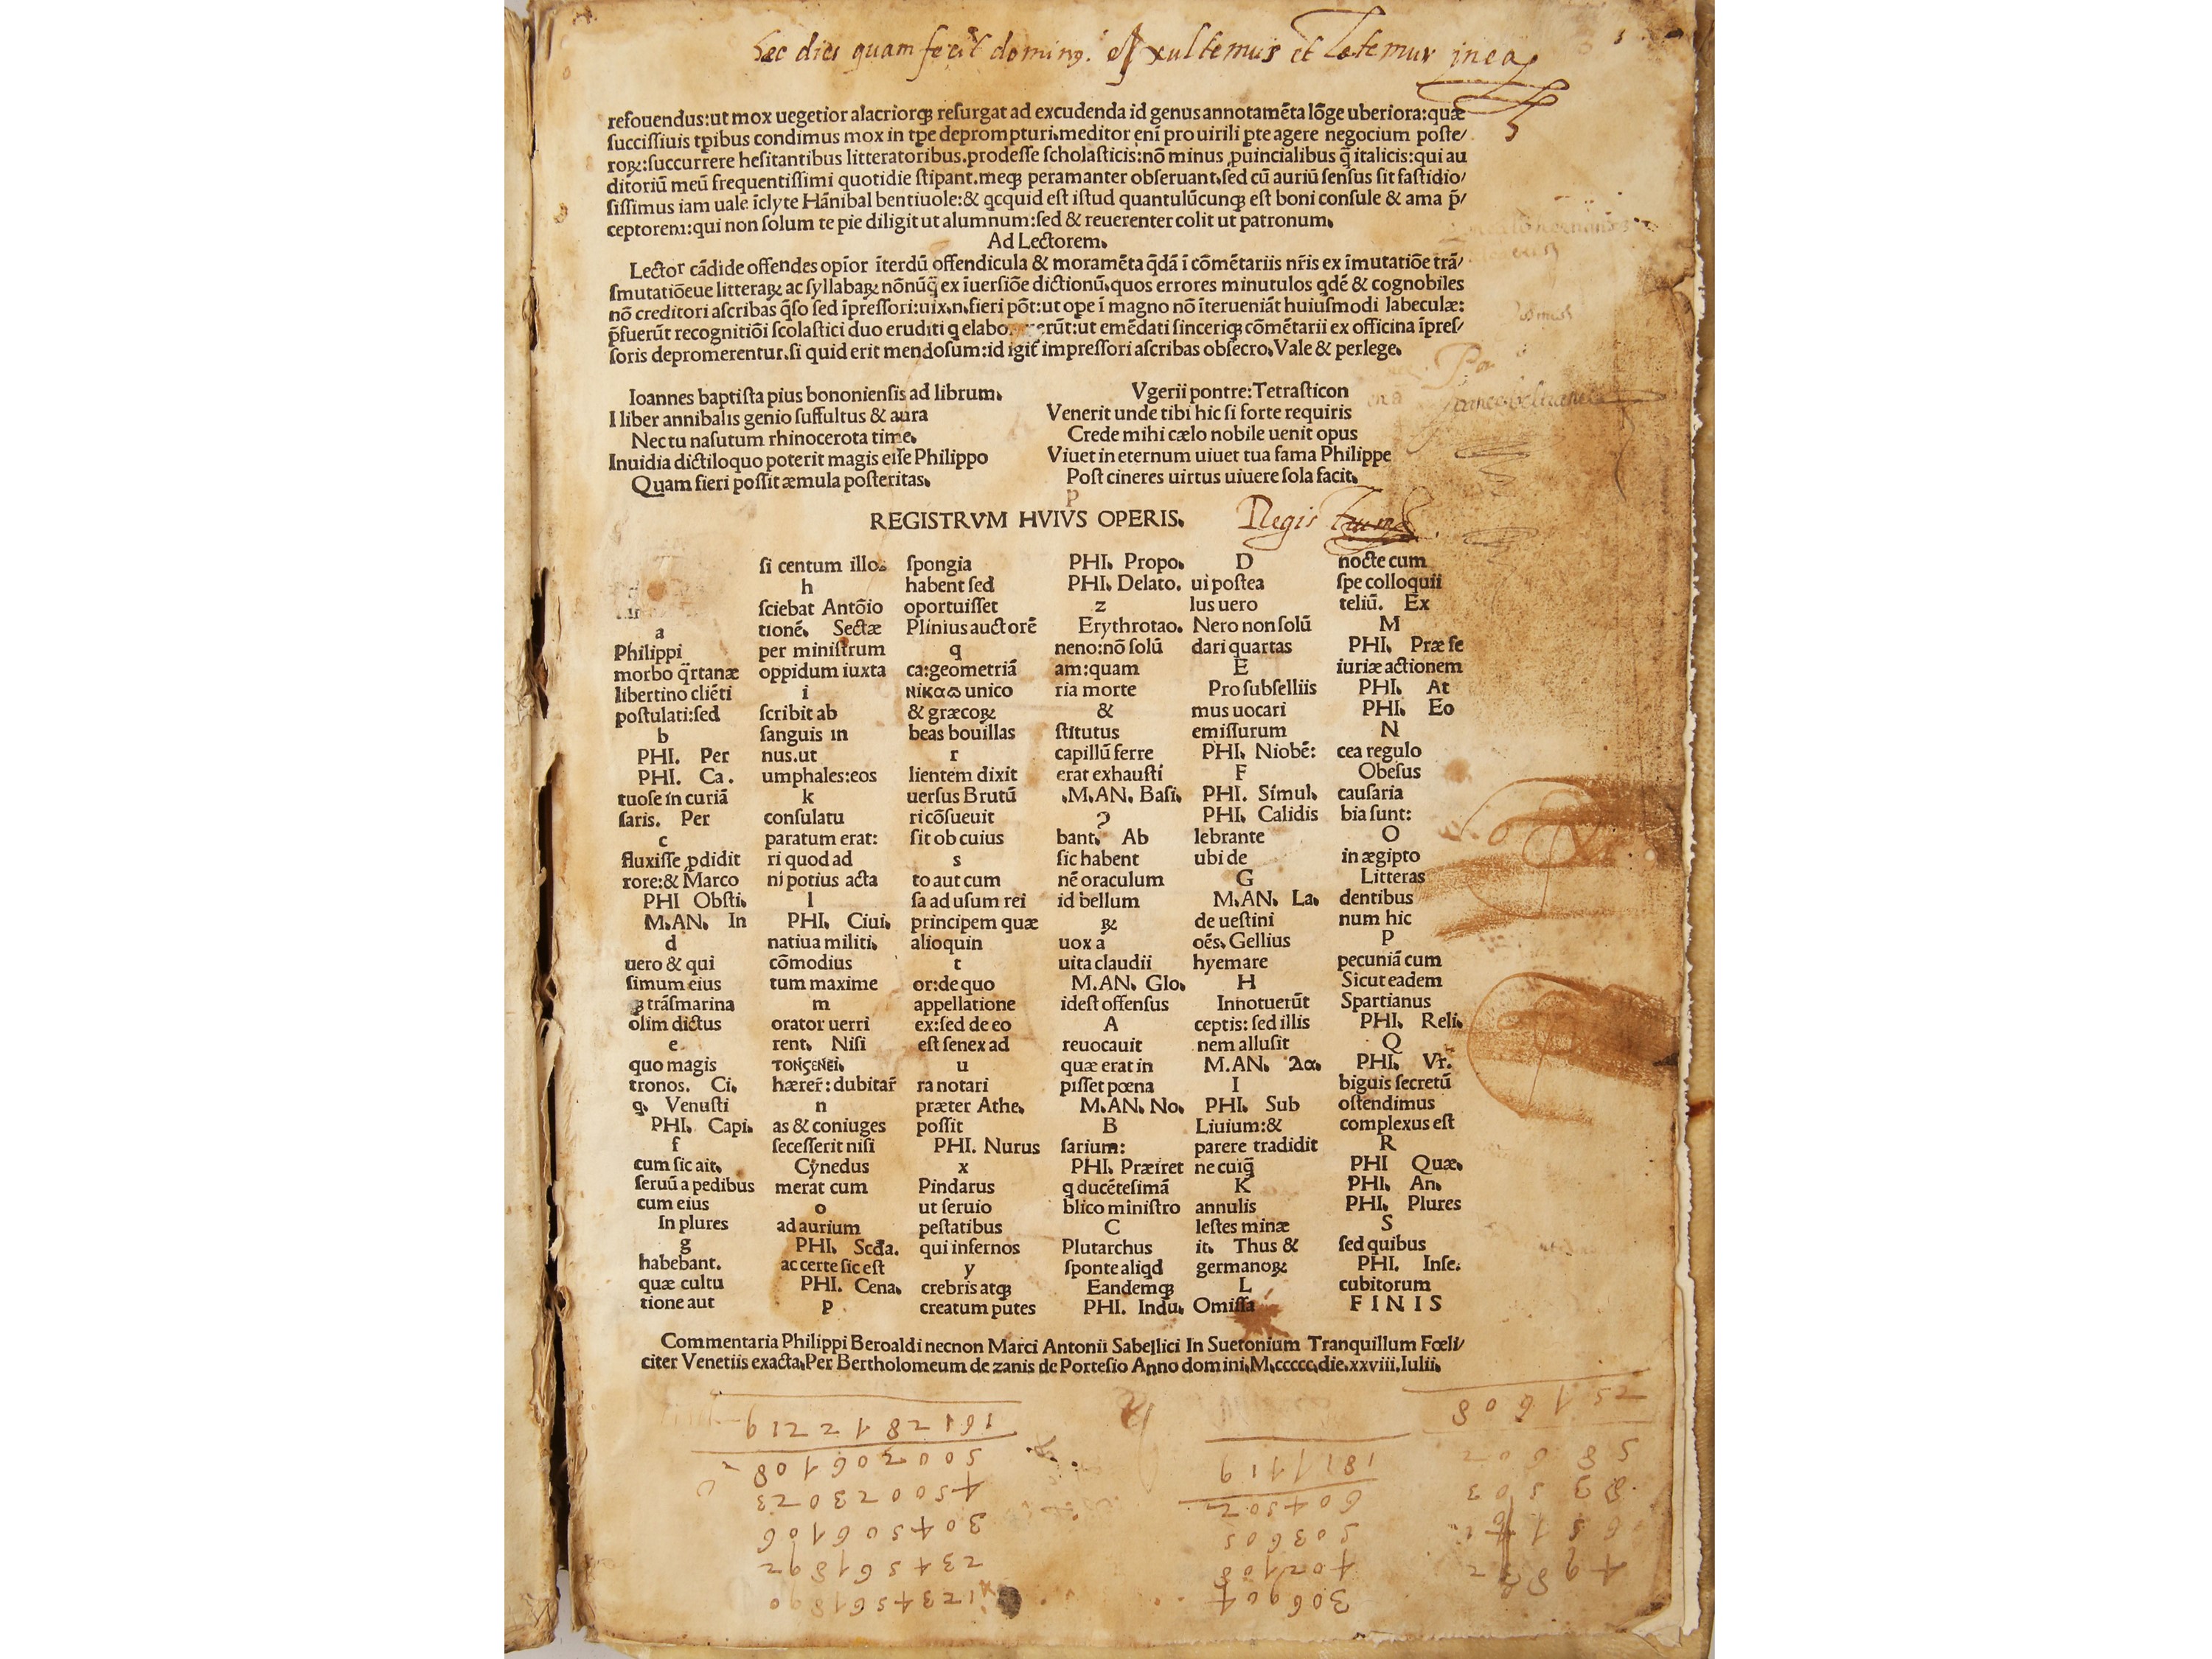 hec dies quam fecit domin9. exultemus et letemur in ea
refouendus:ut mox uegetior alacriorqꝫ resurgat ad excudenda id genus annotamēta lōge uberiora:quæ
succissiuis tꝑibus condimus mox in tꝑe deprompturi.meditor enī pro uirili ꝑte agere negocium poste/
roꝝ:succurrere hesitantibus litteratoribus.prodesse scholasticis:nō minus ꝓuincialibus q̄ italicis:qui au
ditoriū meū frequentissimi quotidie stipant.meqꝫ peramanter obseruant.sed cū auriū sensus sit fastidio/
sissimus iam uale īclyte Hānibal bentiuole:& qcquid est istud quantulūcunqꝫ est boni consule & ama p̄/
ceptorem:qui non solum te pie diligit ut alumnum:sed & reuerenter colit ut patronum.
Ad Lectorem.
Lector cādide offendes opīor īterdū offendicula & moramēta q̄dā ī cōmētariis nr̄is ex īmutatiōe trā/
smutatiōeue litteraꝝ ac syllabaꝝ nōnūq̄ ex īuersiōe dictionū.quos errores minutulos qdē & cognobiles
nō creditori ascribas q̄so sed īpressori:uix.n.fieri pōt:ut ope ī magno nō īterueniāt huiusmodi labeculæ:
p̄fuerūt recognitiōi scolastici duo eruditi q elabo erūt:ut emēdati sinceriqꝫ cōmētarii ex officina īpres/
soris depromerentur.si quid erit mendosum:id igit̄ impressori ascribas obsecro.Vale & perlege.
Ioannes baptista pius bononiensis ad librum.
I liber annibalis genio suffultus & aura
Nec tu nasutum rhinocerota time.
Inuidia dictiloquo poterit magis esse Philippo
Quam fieri possit æmula posteritas.
Vgerii pontre:Tetrasticon
Venerit unde tibi hic si forte requiris
Crede mihi cælo nobile uenit opus
Viuet in eternum uiuet tua fama Philippe
Post cineres uirtus uiuere sola facit.
P
REGISTRVM HVIVS OPERIS. Registrum
a
Philippi
morbo q̄rtanæ
libertino cliēti
postulati:sed
b
PHI. Per
PHI. Ca.
tuose in curiā
saris. Per
c
fluxisse ꝓdidit
rore:& Marco
PHI Obsti.
M.AN. In
d
uero & qui
simum eius
qꝫ trāsmarina
olim dictus
e
quo magis
tronos. Ci.
q. Venusti
PHI. Capi.
f
cum sic ait.
seruū a pedibus
cum eius
In plures
g
habebant.
quæ cultu
tione aut
si centum illo.
h
sciebat Antōio
tionē. Sectæ
per ministrum
oppidum iuxta
i
scribit ab
sanguis in
nus.ut
umphales:eos
k
consulatu
paratum erat:
ri quod ad
ni potius acta
l
PHI. Ciui.
natiua militi.
cōmodius
tum maxime
m
orator uerri
rent. Nisi
hærer̄:dubitar̄
n
as & coniuges
secesserit nisi
Cynedus
merat cum
o
ad aurium
PHI. Scda.
ac certe sic est
PHI. Cena.
p
spongia
habent sed
oportuisset
Plinius auctorē
q
ca:geometriā
νικαω unico
& græcoꝝ
beas bouillas
r
lientem dixit
uersus Brutū
ri cōsueuit
sit ob cuius
s
to aut cum
sa ad usum rei
principem quæ
alioquin
t
or:de quo
appellatione
ex:sed de eo
est senex ad
u
ra notari
præter Athe.
possit
PHI. Nurus
x
Pindarus
ut seruio
pestatibus
qui infernos
y
crebris atqꝫ
creatum putes
PHI. Propo.
PHI. Delato.
z
Erythrotao.
neno:nō solū
am:quam
ria morte
&
stitutus
capillū ferre
erat exhausti
.M.AN. Basi.
ꝯ
bant. Ab
sic habent
nē oraculum
id bellum
ꝝ
uox a
uita claudii
M.AN. Glo.
idest offensus
A
reuocauit
quæ erat in
pisset pœna
M.AN. No.
B
sarium:
PHI. Præiret
q ducētesimā
blico ministro
C
Plutarchus
sponte aliqd
Eandemqꝫ
PHI. Indu.
D
ui postea
lus uero
Nero non solū
dari quartas
E
Pro subselliis
mus uocari
emissurum
PHI. Niobē:
F
PHI. Simul.
PHI. Calidis
lebrante
ubi de
G
M.AN. La.
de uestini
oēs. Gellius
hyemare
H
Innotuerūt
ceptis:sed illis
nem allusit
M.AN. λα.
I
PHI. Sub
Liuium:&
parere tradidit
ne cuiq̄
K
annulis
lestes minæ
it. Thus &
germanoꝝ
L
Omissa
nocte cum
spe colloquii
teliū. Ex
M
PHI. Præ se
iuriæ actionem
PHI. At
PHI. Eo
N
cea regulo
Obesus
causaria
bia sunt:
O
in ægipto
Litteras
dentibus
num hic
P
pecuniā cum
Sicut eadem
Spartianus
PHI. Reli.
Q
PHI. Vr.
biguis secretū
ostendimus
complexus est
R
PHI Quæ.
PHI. An.
PHI. Plures
S
sed quibus
PHI. Inse.
cubitorum
FINIS
Commentaria Philippi Beroaldi necnon Marci Antonii Sabellici In Suetonium Tranquillum Fœli/
citer Venetiis exacta.Per Bertholomeum de zanis de Portesio Anno domini.M.ccccc.die.xxviii.Iulii.